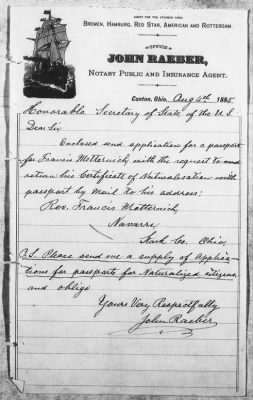 AGENT FOR THE STEAMER LINES
BREMEN, HAMBURG, RED STAR, AMERICAN AND ROTTERDAM.
OFFICE
JOHN RAEBER,
NOTARY PUBLIC AND INSURANCE AGENT.
Canton, Ohio, Aug 4th 1885
Honorable Secretary of State of the U.S
Dear Sir
Enclosed send application for a passport
for Francis Motternich, with the request to send
return his Certificate of Naturalisation with
passport by mail to his address:
Rev. Francis Motternich,
Navarre,
Stark Co. Ohio,
P.S. Please send me a supply of Applica-
tions for passports for Naturalized citizens,
and oblige
Yours Very Respectfully
John Raeber